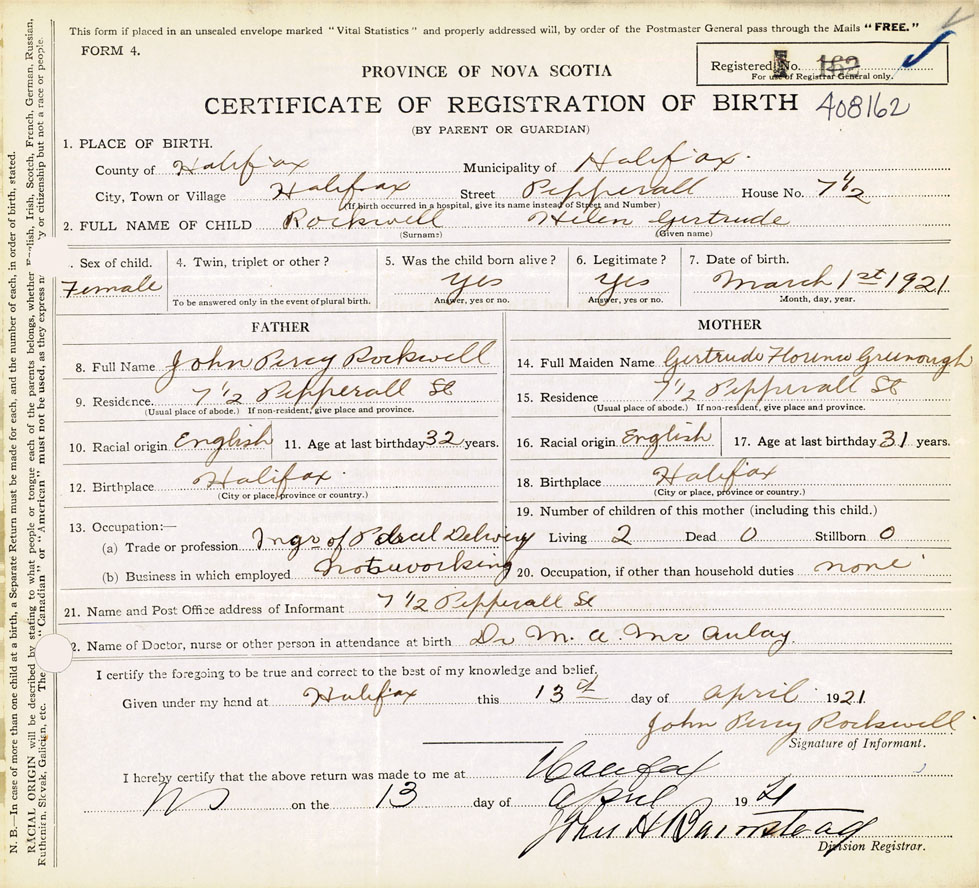 This form if placed in an unsealed envelope marked "Vital Statistics" and properly addressed will, by order of the Postmaster General pass through the Mails "FREE."
FORM 4.
Registered No. 162
For use of Registrar General only.
PROVINCE OF NOVA SCOTIA
CERTIFICATE OF REGISTRATION OF BIRTH 408162
(BY PARENT OR GUARDIAN)
1. PLACE OF BIRTH.
County of Halifax Municipality of Halifax.
City, Town or Village Halifax Street Pepperall House No. 7 1/2
(If birth occurred in a hospital, give its name instead of Street and Number)
2. FULL NAME OF CHILD Rockwell Helen Gertrude
(Surname) (Given name)
. Sex of child. 4. Twin, triplet or other? 5. Was the child born alive? 6. Legitimate? 7. Date of birth.
Female Yes Yes March 1st 1921
To be answered only in the event of plural birth. Answer, yes or no. Answer, yes or no. Month, day, year.
FATHER MOTHER
8. Full Name John Percy Rockwell 14. Full Maiden Name Gertrude Florence Greenough
9. Residence. 7 1/2 Pepperall St 15. Residence 7 1/2 Pepperall St
(Usual place of abode.) If non-resident, give place and province. (Usual place of abode.) If non-resident, give place and province.
10. Racial origin English 11. Age at last birthday 32 years. 16. Racial origin English 17. Age at last birthday 31 years.
12. Birthplace Halifax. 18. Birthplace Halifax
(City or place, province or country.) (City or place, province or country.)
13. Occupation:— 19. Number of children of this mother (including this child.)
(a) Trade or profession of Parcel Delivery Living 2 Dead 0 Stillborn 0
(b) Business in which employed not working 20. Occupation, if other than household duties none
21. Name and Post Office address of Informant 7 1/2 Pepperall St
2. Name of Doctor, nurse or other person in attendance at birth Dr M. A. McAulay.
I certify the foregoing to be true and correct to the best of my knowledge and belief.
Given under my hand at Halifax this 13th day of April 1921.
John Percy Rockwell.
Signature of Informant.
I hereby certify that the above return was made to me at Halifax
NS on the 13 day of April 1921
John H Barnstead
Division Registrar.
N. B.—In case of more than one child at a birth, a Separate Return must be made for each, and the number of each, in order of birth, stated.
RACIAL ORIGIN will be described by stating to what people or tongue each of the parents belongs, whether lish, Irish, Scotch, French, German, Russian,
Ruthenian, Slovak, Galician, etc. The "Canadian" or "American" must not be used, as they express y or citizenship but not a race or people.